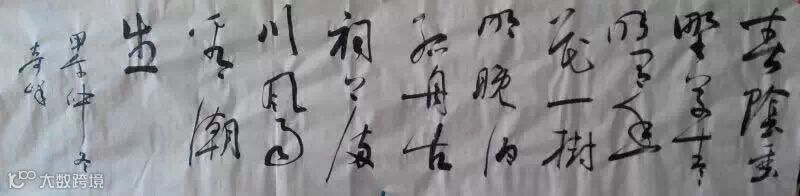 春陰垂
野草青々
時有幽
花一樹
明晚泊
孤舟古
祠下滿
川風雨
看潮
生
甲午仲冬
奇峰
大数跨境